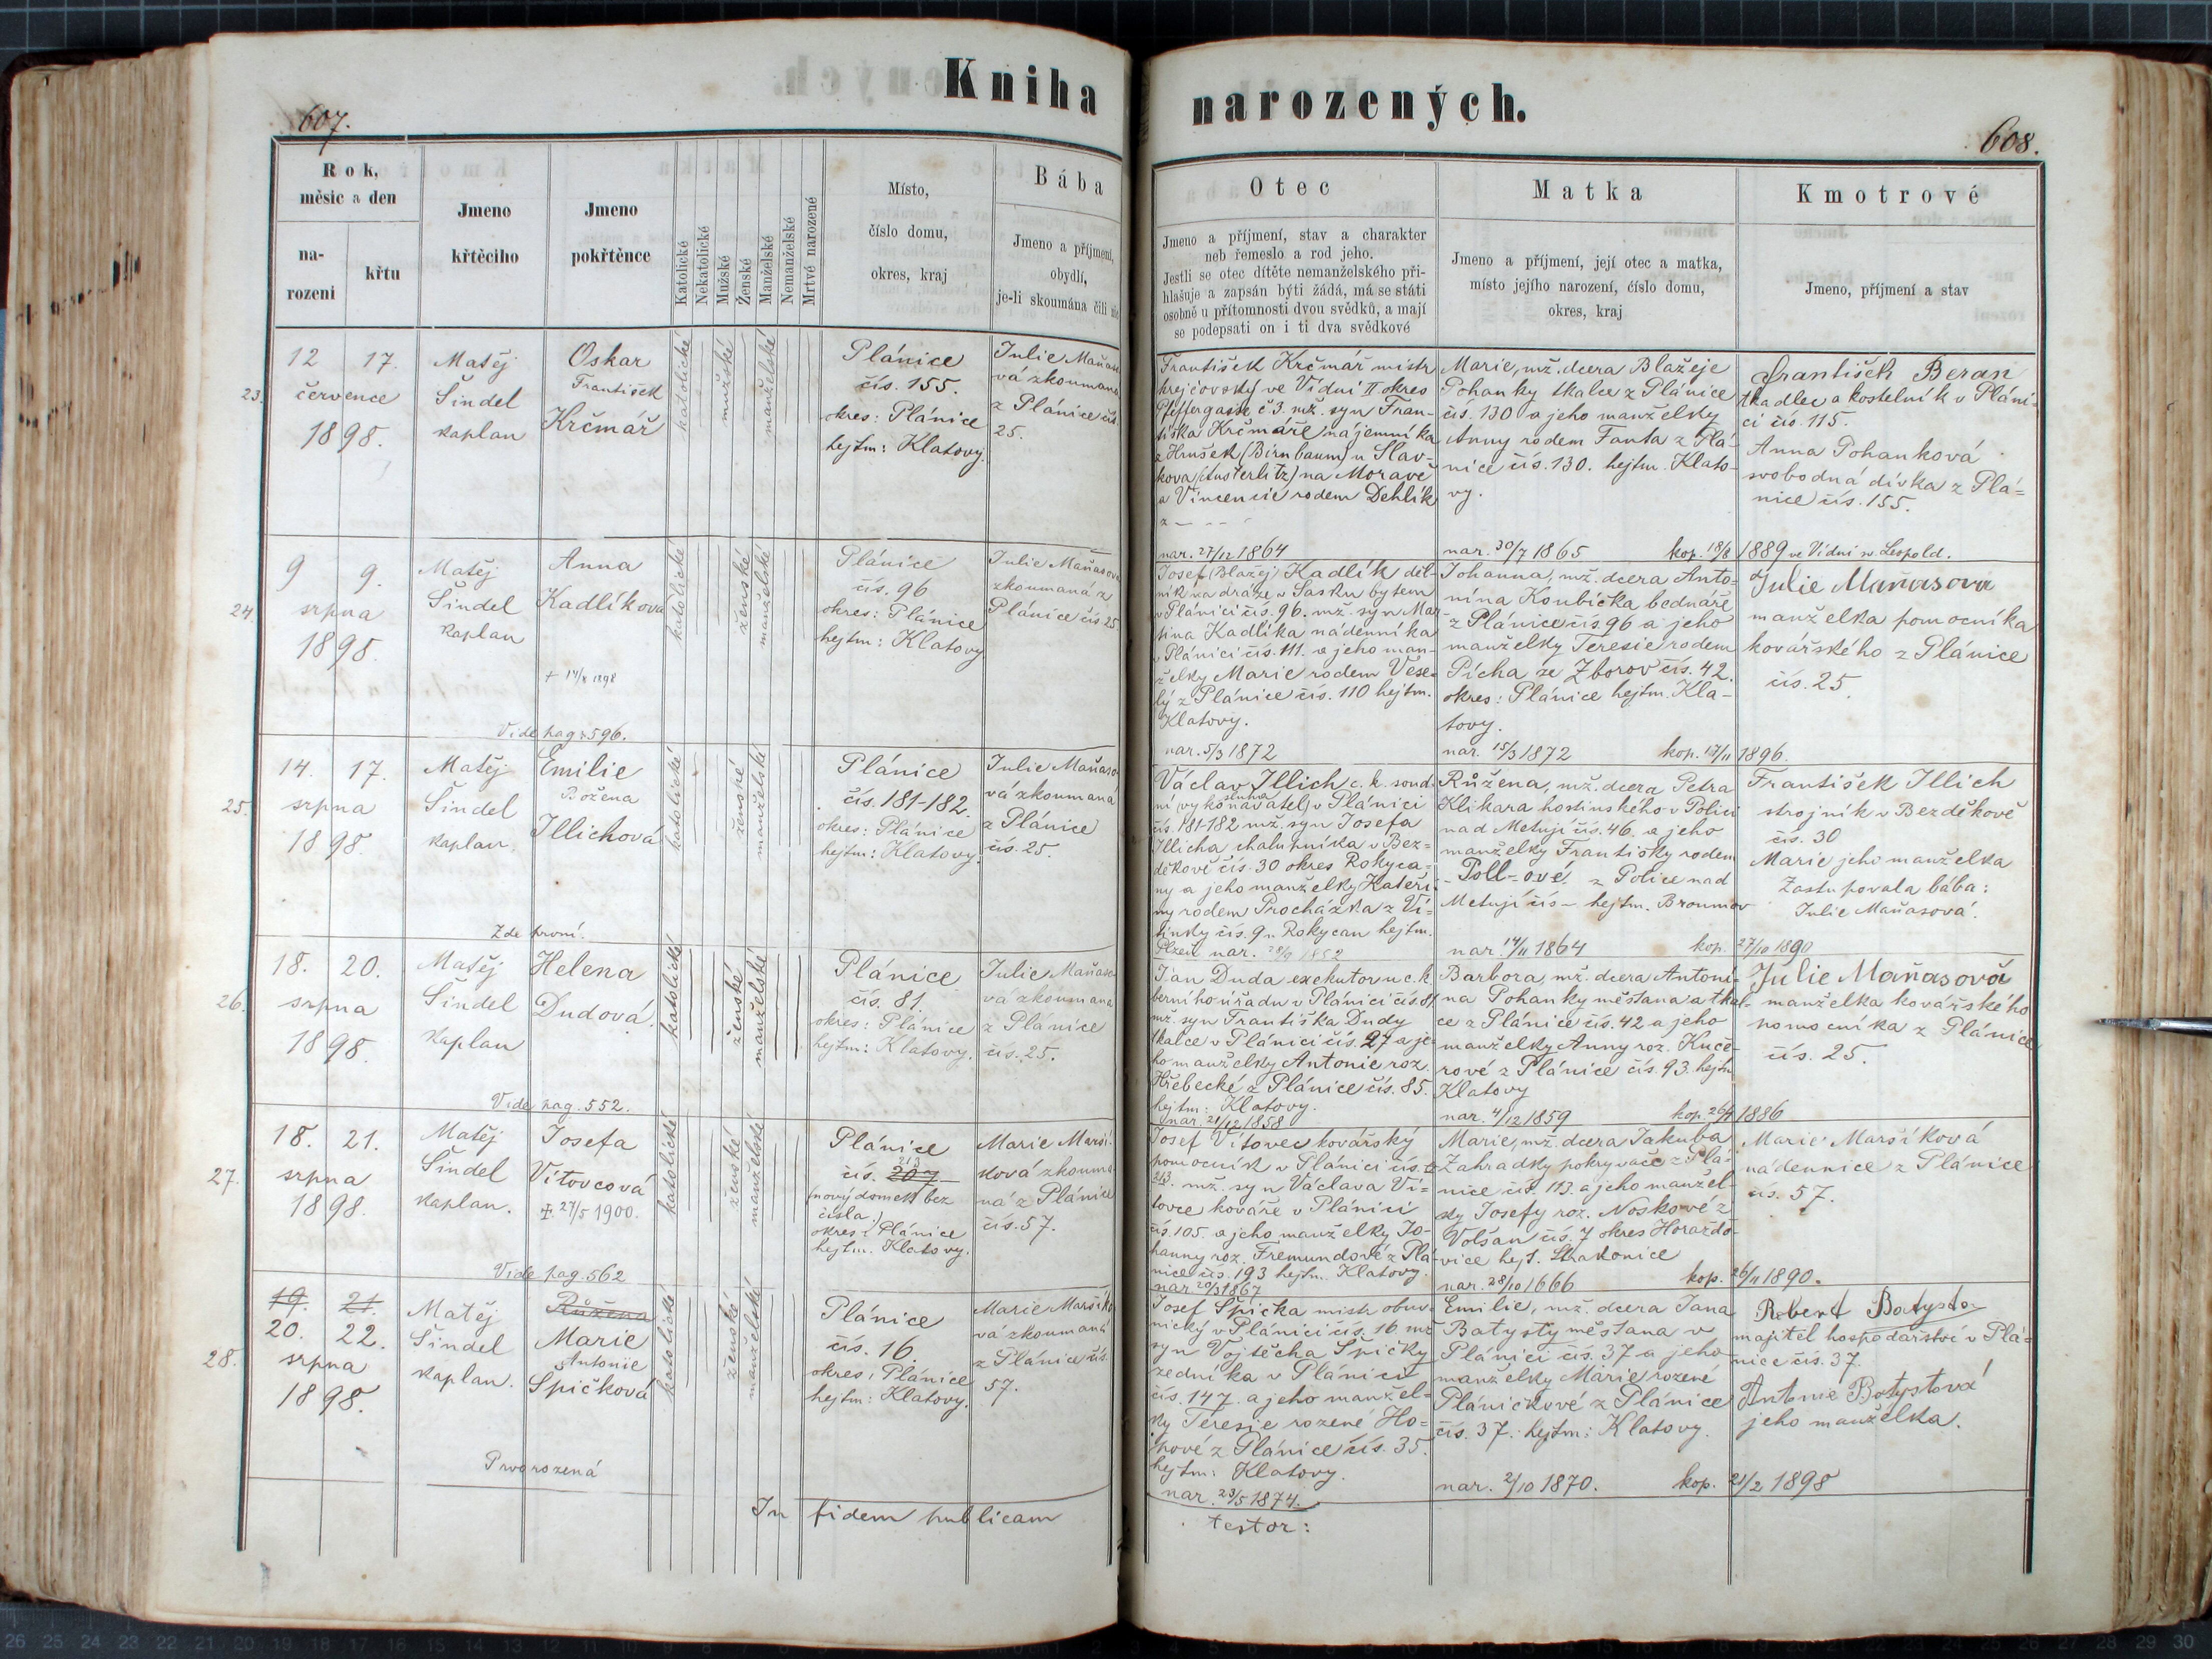 Kniha narozených.
607.
608.
Rok,
měsíc a den
na-
rozeni
křtu
Jmeno
křtěcího
Jmeno
pokřtěnce
Katolické
Nekatolické
Mužské
Ženské
Manželské
Nemanželské
Mrtvé narozené
Místo,
číslo domu,
okres, kraj
Bába
Jmeno a příjmení,
obydlí,
je-li skoumána čili
Otec
Jmeno a příjmení, stav a charakter
neb řemeslo a rod jeho.
Jestli se otec dítěte nemanželského při-
hlašuje a zapsán býti žádá, má se státi
osobně u přítomnosti dvou svědků, a mají
se podepsati on i ti dva svědkové
Matka
Jmeno a příjmení, její otec a matka,
místo jejího narození, číslo domu,
okres, kraj
Kmotrové
Jmeno, příjmení a stav
23.
12 17.
července
1898.
Matěj
Šindel
kaplan
Oskar
František
Krčmář
katolické
mužské
manželské
Plánice
čís. 155.
okres: Plánice
hejtm: Klatovy.
Julie Maňaso
vá zkoumaná
z Plánice čís.
25.
František Krčmář mistr
krejčovský ve Vídni II okres
Pfeffergasse č 3. mž. syn Fran-
tiška Krčmáře nájemníka
z Hrušek (Birnbaum) u Slav-
kova (Austerlitz) na Moravě
a Vincencie rodem Dehlík
z - - -
nar. 27/12 1864
Marie, mž. dcera Blažeje
Pohanky tkalce z Plánice
čís. 130 a jeho manželky
Anny rodem Fanta z Plá-
nice čís. 130. hejtm. Klato-
vy.
nar. 30/7 1865 kop. 18/8 1889 ve Vídni sv. Leopold.
František Beran
tkadlec a kostelník v Pláni-
ci čís. 115.
Anna Pohanková
svobodná dívka z Plá-
nice čís. 155.
24.
9 9.
srpna
1898.
Matěj
Šindel
kaplan
Anna
Kadlíková
+ 14/8 1898
Vide pag. 596.
katolické
ženské
manželské
Plánice
čís. 96
okres: Plánice
hejtm: Klatovy
Julie Maňasova
zkoumaná z
Plánice čís. 25
Josef (Blažej) Kadlík děl-
ník na dráze v Sasku bytem
v Plánici čís. 96. mž. syn Mar-
tina Kadlíka nádenníka
v Plánici čís. 111. a jeho man-
želky Marie rodem Vese-
lý z Plánice čís. 110 hejtm.
Klatovy.
nar. 5/3 1872
Johanna, mž. dcera Anto-
nína Koubíčka bednáře
z Plánice čís. 96 a jeho
manželky Teresie rodem
Pícha ze Zborov čís. 42.
okres: Plánice hejtm. Kla-
tovy.
nar. 15/3 1872 kop. 17/11 1896.
Julie Maňasova
manželka pomocníka
kovářského z Plánice
čís. 25.
25.
14. 17.
srpna
1898.
Matěj
Šindel
kaplan.
Emilie
Božena
Illichová
Zde první.
katolické
ženské
manželské
Plánice
čís. 181-182.
okres: Plánice
hejtm: Klatovy.
Julie Maňaso
vá zkoumaná
z Plánice
čís. 25.
Václav Illich c. k. soud-
ní vykonavatel v Plánici
čís. 181-182 mž. syn Josefa
Illicha chalupníka v Bez-
děkově čís. 30 okres Rokyca-
ny a jeho manželky Kateři-
ny rodem Procházka z Vi-
tinky čís. 9 u Rokycan hejtm.
Plzeň nar. 28/9 1852
Růžena, mž. dcera Petra
Klikara hostinského v Polici
nad Metují čís. 46. a jeho
manželky Františky rodem
Poll-ové z Police nad
Metují čís - hejtm. Broumov
nar. 14/11 1864 kop. 27/10 1890
František Illich
strojník v Bezděkově
čís. 30
Marie jeho manželka
Zastupovala bába:
Julie Maňasová.
26.
18. 20.
srpna
1898.
Matěj
Šindel
kaplan
Helena
Dudová.
Vide pag. 552.
katolické
ženské
manželské
Plánice
čís. 81.
okres: Plánice
hejtm: Klatovy.
Julie Maňaso
vá zkoumaná
z Plánice
čís. 25.
Jan Duda exekutor u c. k.
berního úřadu v Plánici čís. 81
mž. syn Františka Dudy
tkalce v Plánici čís. 27 a je-
ho manželky Antonie roz.
Hřebecké z Plánice čís. 85.
hejtm: Klatovy.
nar. 21/12 1858
Barbora, mž. dcera Antoní-
na Pohanky měšťana a tkal-
ce z Plánice čís. 42 a jeho
manželky Anny roz. Kuče-
rové z Plánice čís. 93. hejtm
Klatovy
nar. 4/12 1859 kop. 26/4 1886
Julie Maňasová
manželka kovářského
pomocníka z Plánice
čís. 25.
27.
18. 21.
srpna
1898.
Matěj
Šindel
kaplan.
Josefa
Vítovcová
+. 27/5 1900.
Vide pag. 562
katolické
ženské
manželské
Plánice
213
čís. 207
(nový domek bez
čísla)
okres: Plánice
hejtm. Klatovy.
Marie Marší-
ková zkouma-
ná z Plánice
čís. 57.
Josef Vítovec kovářský
pomocník v Plánici čís.
213. mž. syn Václava Ví-
tovce kováře v Plánici
čís. 105. a jeho manželky Jo-
hanny roz. Fremundové z Plá-
nice čís. 193 hejtm. Klatovy.
nar. 20/3 1867
Marie, mž. dcera Jakuba
Zahradky pokryvače z Plá-
nice čís. 113. a jeho manžel-
ky Josefy roz. Noskové z
Volšan čís. 7 okres Horažďo-
vice hejt. Strakonice
nar. 28/10 1666 kop. 26/11 1890.
Marie Maršíková
nádennice z Plánice
čís. 57.
28.
19. 21.
20. 22.
srpna
1898.
Matěj
Šindel
kaplan.
Růžena
Marie
Antonie
Špičková
Prvorozená
katolické
ženské
manželské
Plánice
čís. 16.
okres: Plánice
hejtm: Klatovy.
Marie Maršíko
vá zkoumaná
z Plánice čís.
57.
Josef Špička mistr obuv-
nický v Plánici čís. 16. mž
syn Vojtěcha Špičky
zedníka v Plánici
čís. 147. a jeho manžel-
ky Teresie rozené Ho-
pové z Plánice čís. 35.
hejtm: Klatovy.
nar. 23/5 1874.
Emilie, mž. dcera Jana
Batysty měšťana v
Plánici čís. 37 a jeho
manželky Marie rozené
Pláničkové z Plánice
čís. 37. hejtm: Klatovy.
nar. 2/10 1870. kop. 21/2 1898
Robert Batysta
majitel hospodářství v Plá-
nice čís. 37.
Antonie Batystová
jeho manželka.
In fidem publicam
testor: